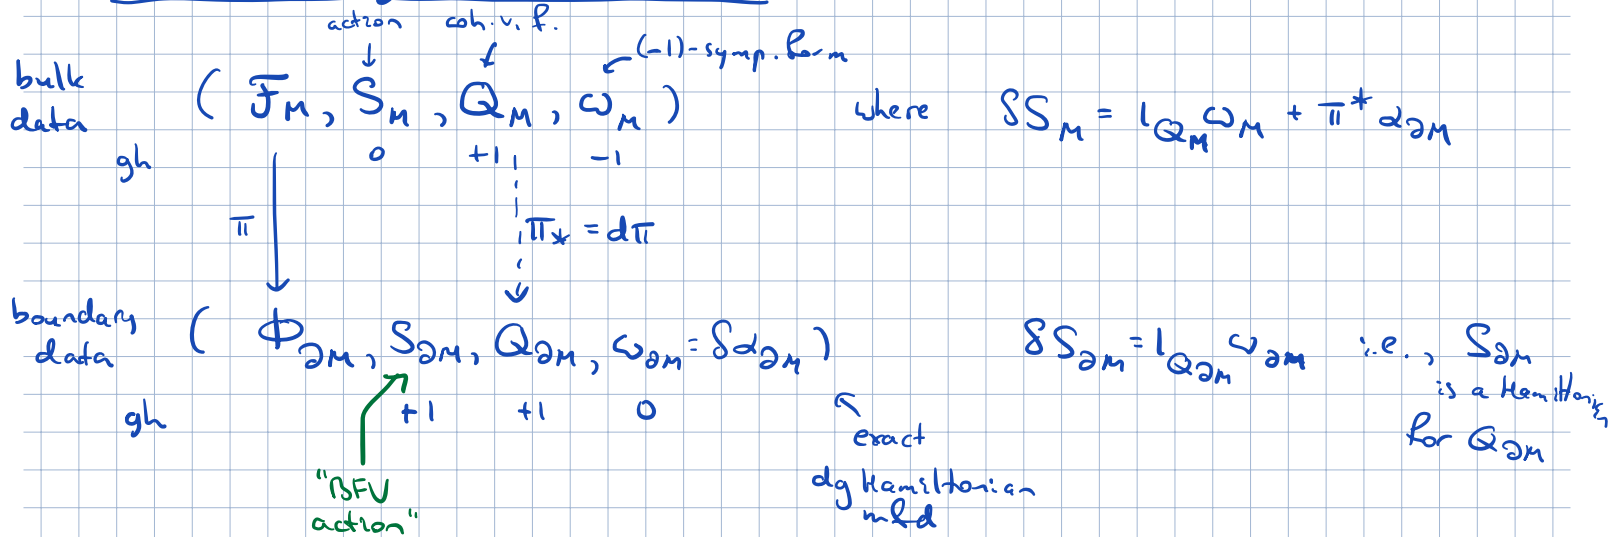 action coh. v. f.
(-1)-symp. form
bulk data ( F_M , S_M , Q_M , ω_M ) where δS_M = ι_{Q_M} ω_M + π* α_{∂M}
gh 0 +1 -1
π π_* = dπ
boundary data ( Φ_{∂M} , S_{∂M} , Q_{∂M} , ω_{∂M} = δα_{∂M} ) δS_{∂M} = ι_{Q_{∂M}} ω_{∂M} i.e., S_{∂M}
is a Hamiltonian
for Q_{∂M}
gh +1 +1 0
exact
dg Hamiltonian
mfd
"BFV
action"